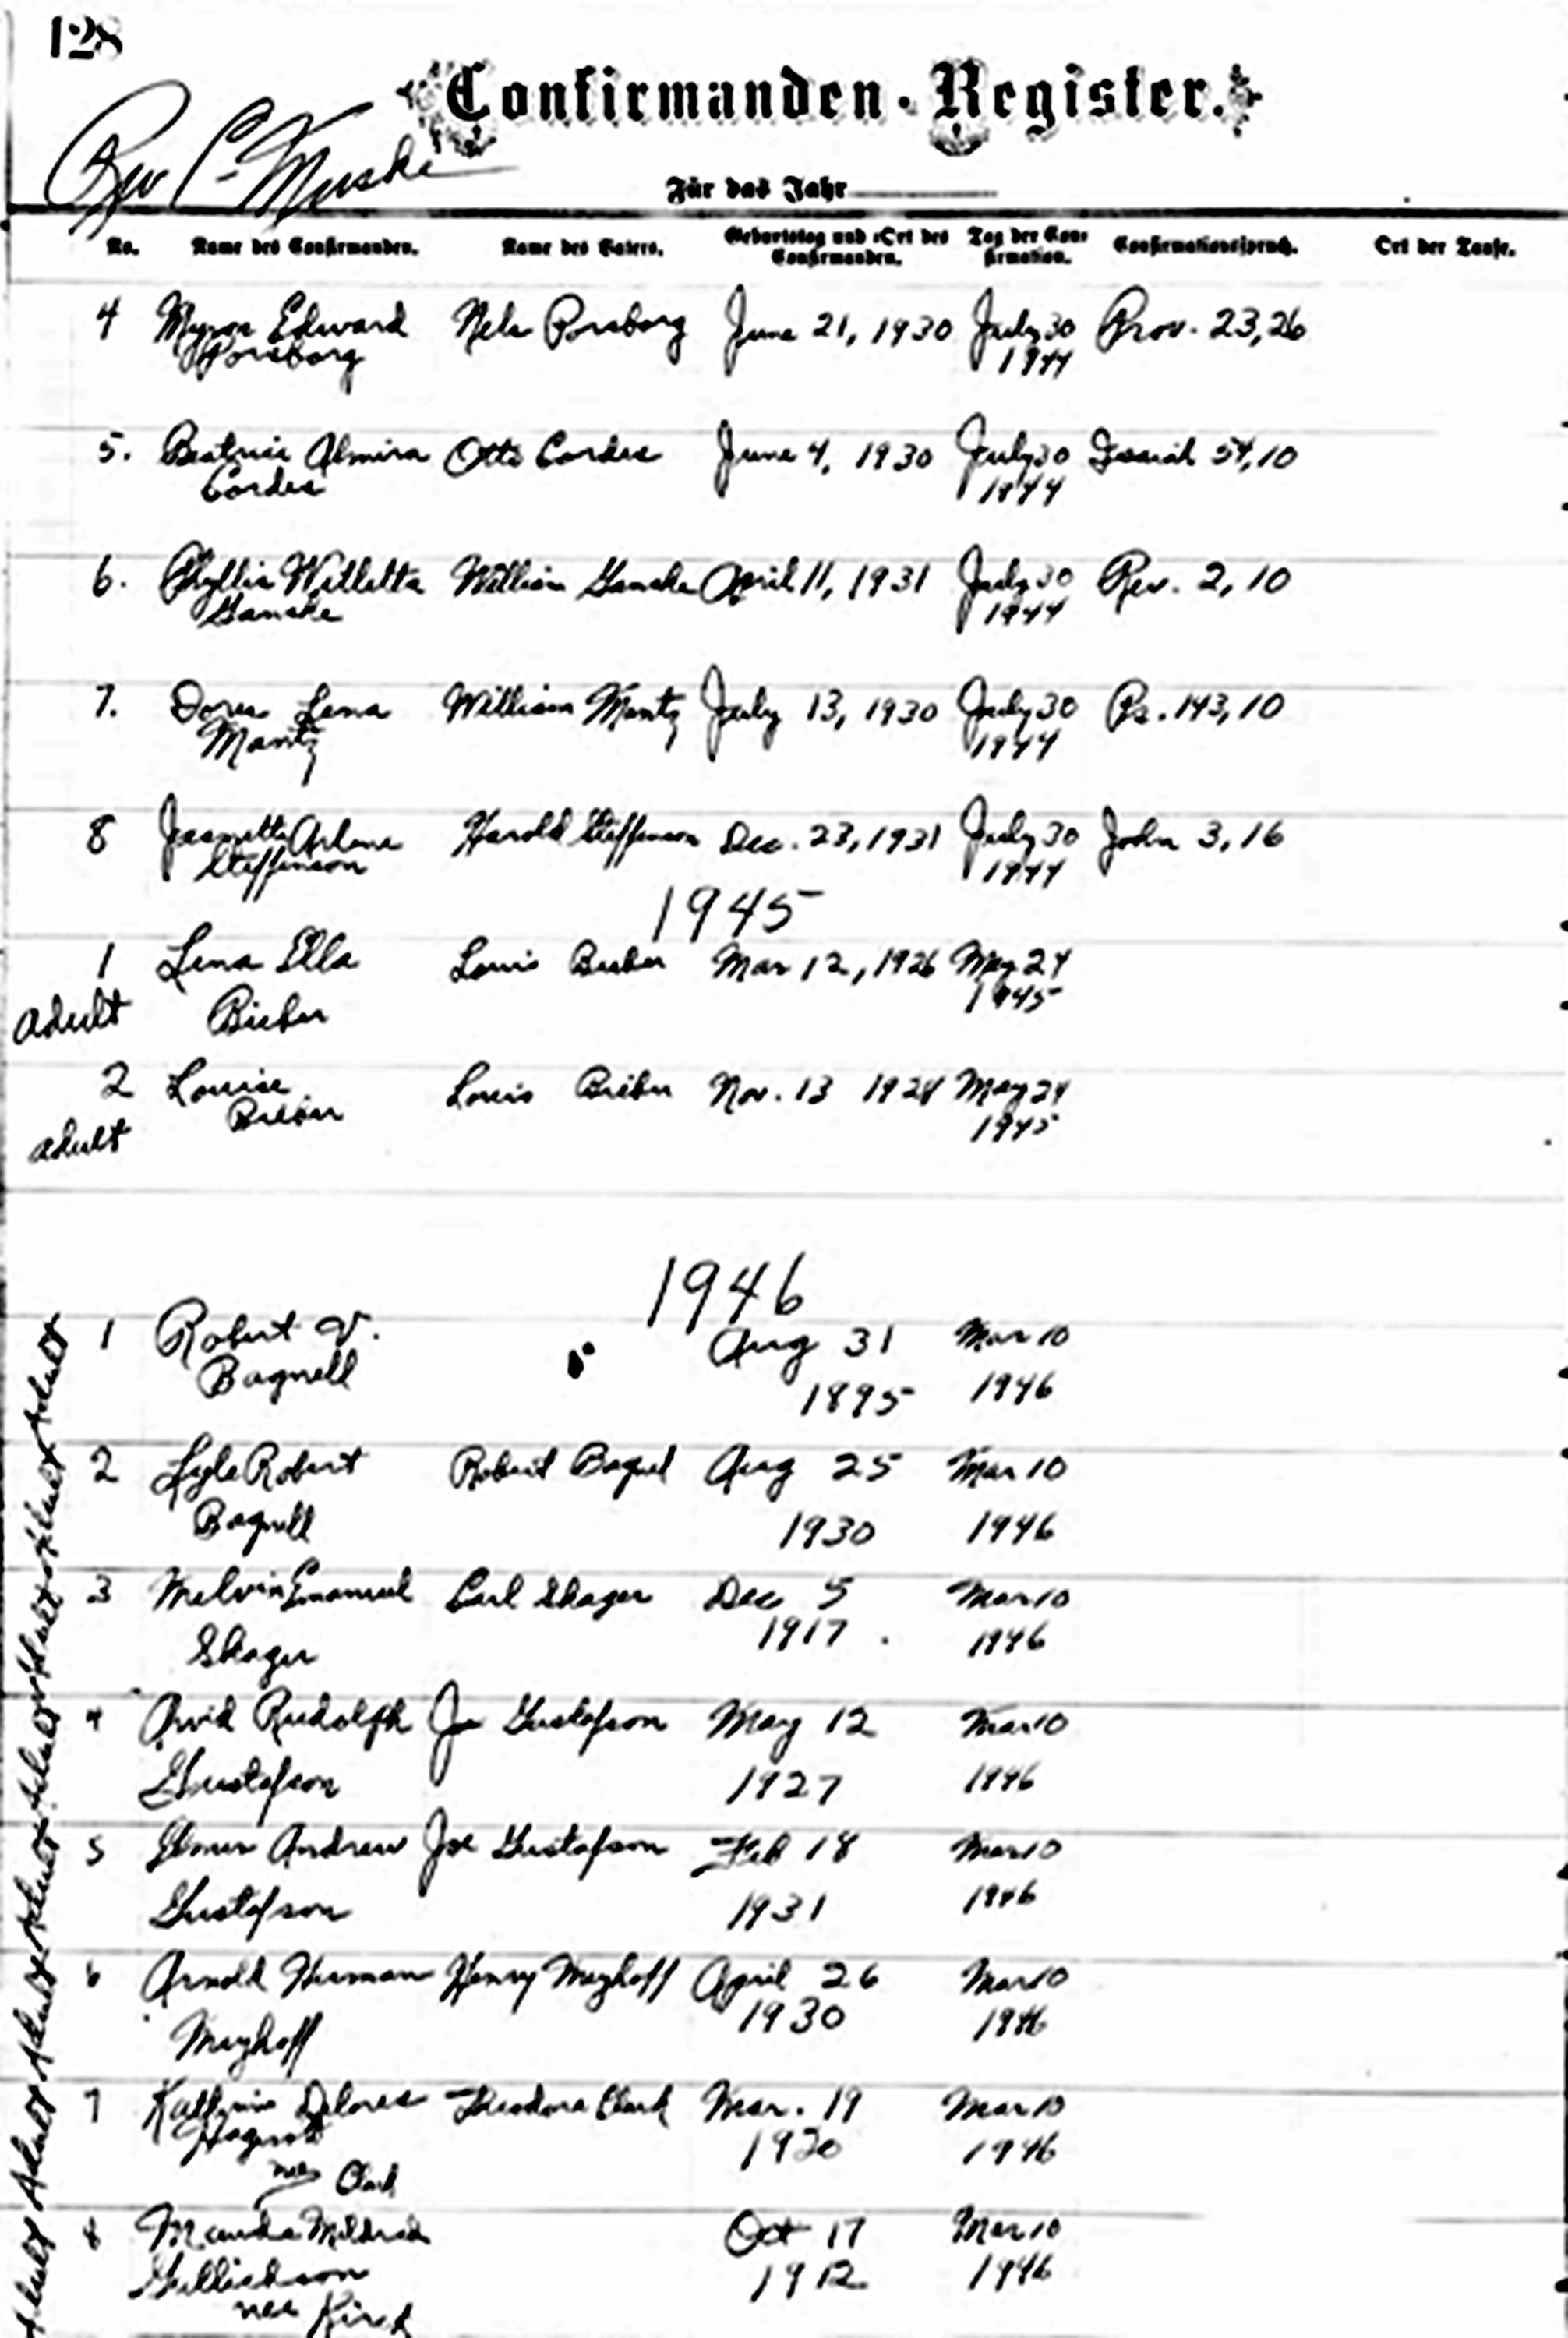 128
Confirmanden-Register.
Rev C. Muske
Für das Jahr
No. Name des Confirmanden. Name des Vaters. Geburtstag und Ort des Confirmanden. Tag der Confirmation. Confirmationsspruch. Ort der Taufe.
4 Myron Edward Nels Porsborg June 21, 1930 July 30 Prov. 23,26
Porsborg 1944
5. Beatrice Almira Otto Cordes June 4, 1930 July 30 Isaiah 54,10
Cordes 1944
6. Phyllis Willetta William Ganske April 11, 1931 July 30 Rev. 2,10
Ganske 1944
7. Doris Lena William Mantz July 13, 1930 July 30 Ps. 143,10
Mantz 1944
8 Jeanette Arlene Harold Steffenson Dec. 23, 1931 July 30 John 3,16
Steffenson 1944
1945
1 Lena Ella Louis Bieber Mar 12, 1926 May 24
adult Bieber 1945
2 Louise Louis Bieber Nov. 13 1924 May 24
adult Bieber 1945
1946
1 Robert V. Aug 31 Mar 10
Bagnell 1895 1946
2 Lyle Robert Robert Bagnel Aug 25 Mar 10
Bagnell 1930 1946
3 Melvin Emanuel Carl Skager Dec 5 Mar 10
Skager 1917 1946
4 Arvid Rudolph Joe Gustafson May 12 Mar 10
Gustafson 1927 1946
5 Elmer Andrew Joe Gustafson Feb 18 Mar 10
Gustafson 1931 1946
6 Arnold Herman Henry Mayhoff April 26 Mar 10
Mayhoff 1930 1946
7 Delores Theodore Clark Mar. 19 Mar 10
1920 1946
nee Clark
8 Mildred Oct 17 Mar 10
1912 1946
nee
Adult Adult Adult Adult Adult Adult Adult Adult